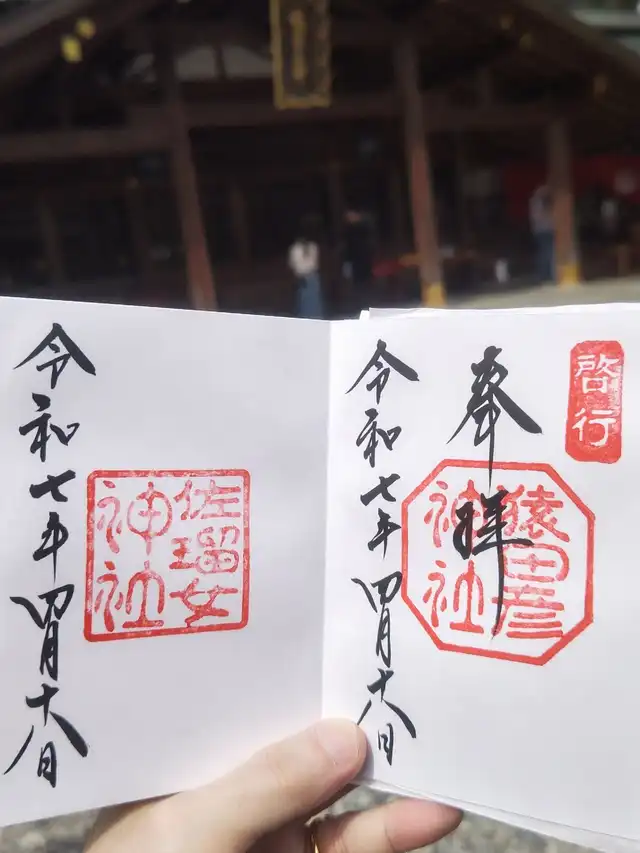 啓行
奉拝
猿田彦
神社
令和七年四月十八日
佐瑠女
神社
令和七年四月十八日